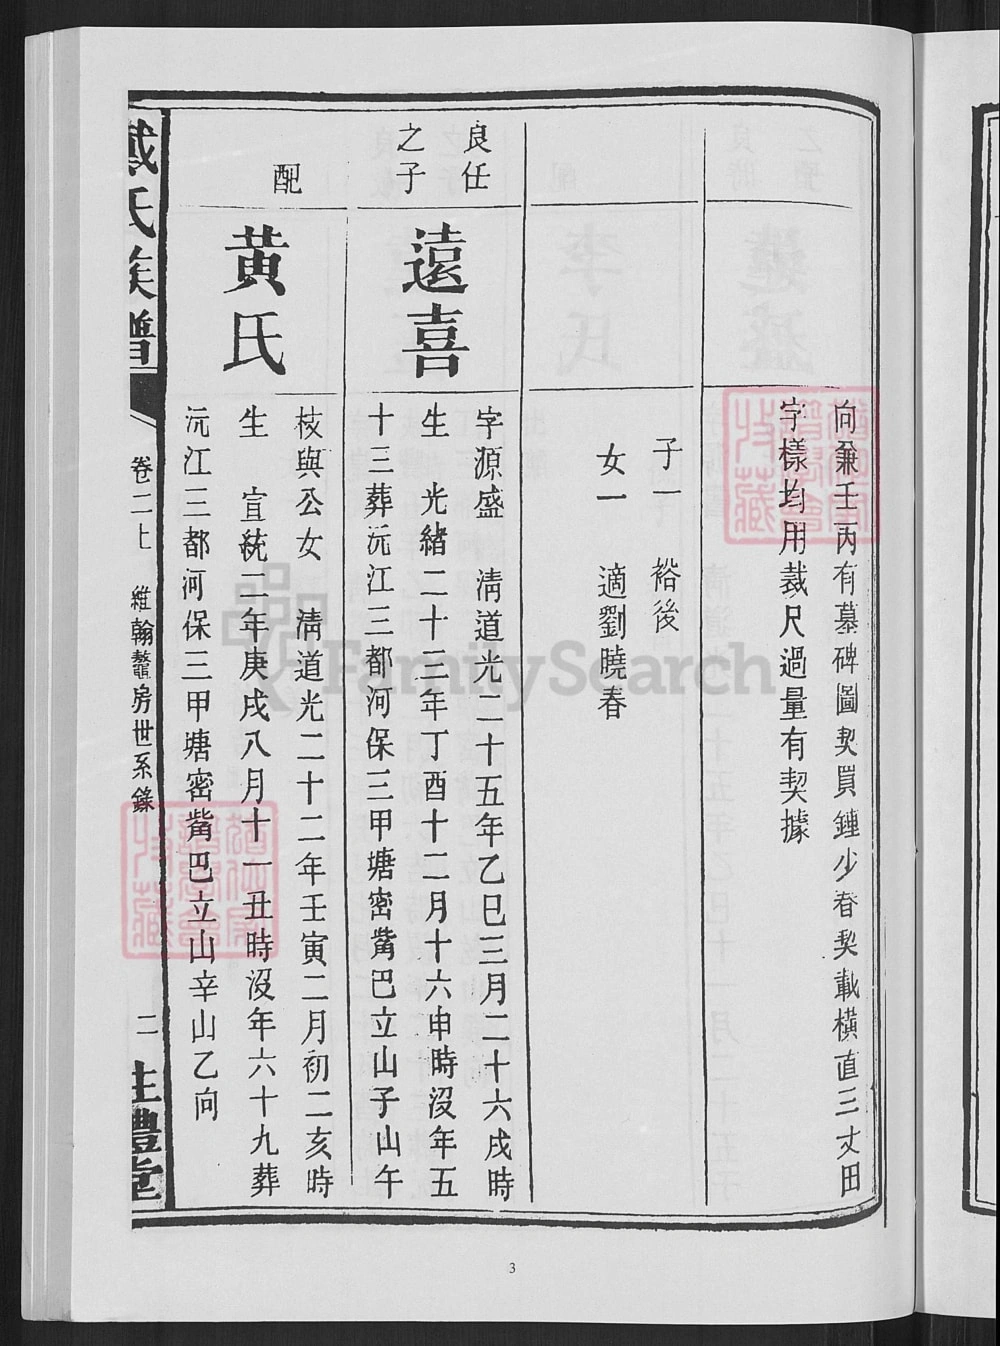 向兼壬丙有墓碑圖契買鍾少春契載橫直三丈田
字樣均用裁尺過量有契據
子一 裕後
女一 適劉曉春
良任
之子
遠喜
字源盛 清道光二十五年乙巳三月二十六戌時
生 光緒二十三年丁酉十二月十六申時沒年五
十三葬沅江三都河保三甲塘密觜巴立山子山午
配
黃氏
枝與公女 清道光二十二年壬寅二月初二亥時
生 宣統二年庚戌八月十一丑時沒年六十九葬
沅江三都河保三甲塘密觜巴立山辛山乙向
戴氏族譜
卷二上 維翰鼇房世系錄
二
注禮堂
3
FamilySearch